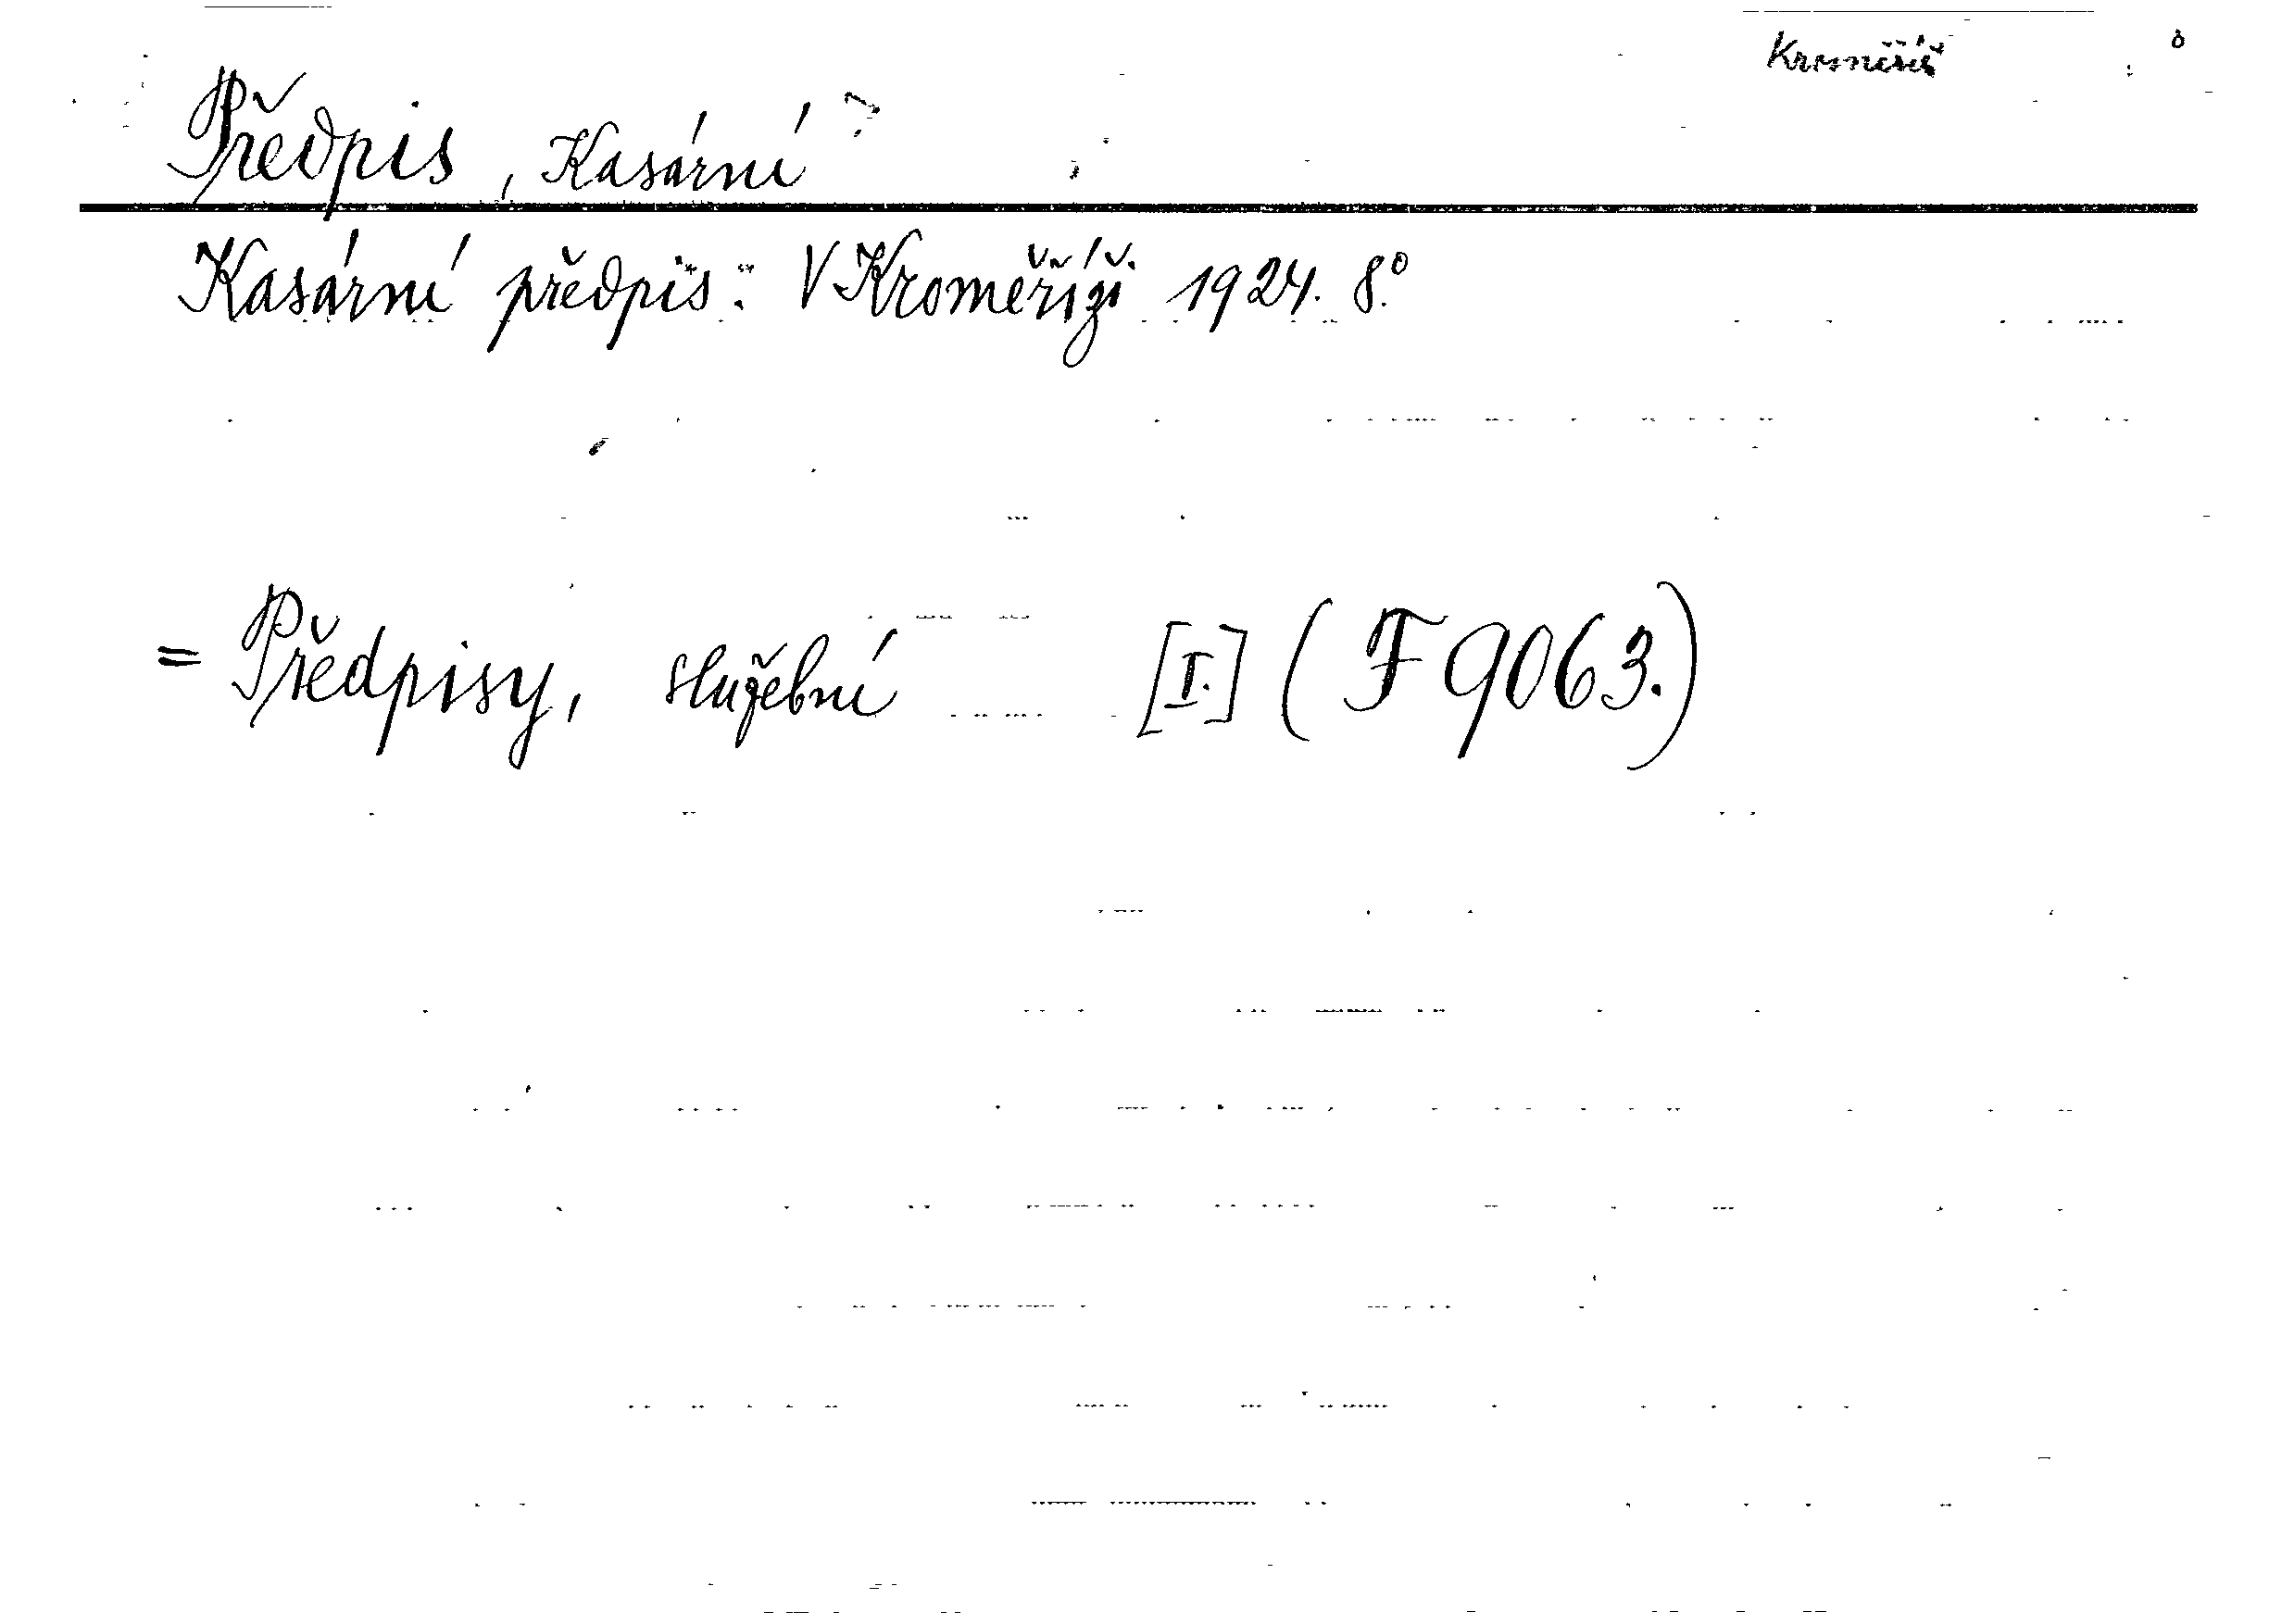 Kroměříž
Předpis, Kasární
Kasární předpis: V Kroměříži 1924. 8.°
= Předpisy, služební [I.] (F 9063.)